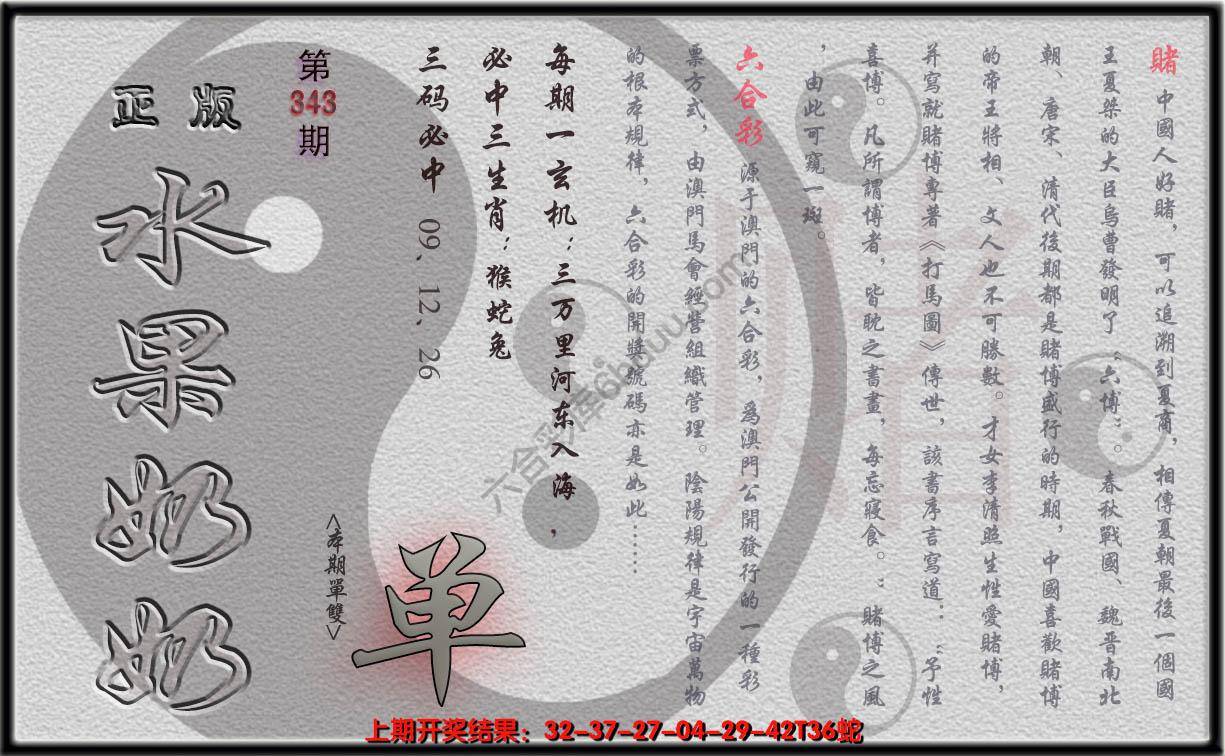 賭 中國人好賭，可以追溯到夏商，相傳夏朝最後一個國
王夏桀的大臣烏曹發明了“六博”。春秋戰國、魏晋南北
朝、唐宋、清代後期都是賭博盛行的時期，中國喜歡賭博
的帝王將相、文人也不可勝數。才女李清照生性愛賭博，
并寫就賭博專著《打馬圖》傳世，該書序言寫道：“予性
喜博。凡所謂博者，皆耽之書畫，每忘寢食。”賭博之風
，由此可窺一斑。
六合彩 源于澳門的六合彩，為澳門公開發行的一種彩
票方式，由澳門馬會經營組織管理。陰陽規律是宇宙萬物
的根本規律，六合彩的開獎號碼亦是如此……
每期一玄机：三万里河东入海，
必中三生肖：猴蛇兔
三码必中 09、12、26
第
343
期
正版
水果奶奶
<本期單雙>
单
賭
六合彩库
上期开奖结果：32-37-27-04-29-42T36蛇